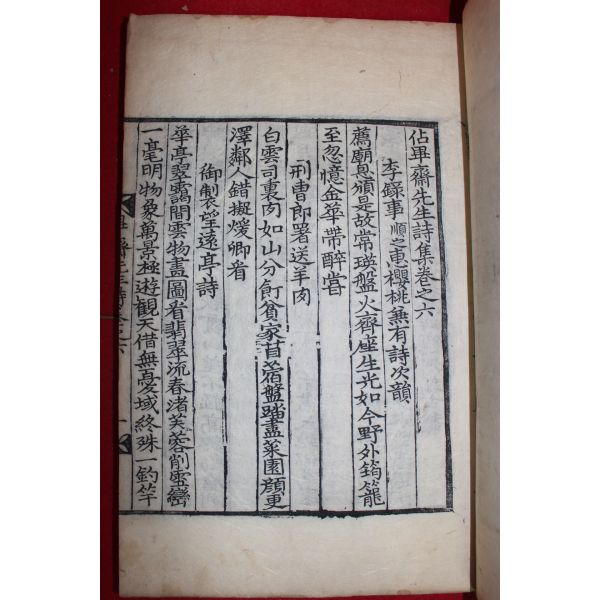 佔畢齋先生詩集卷之六
李錄事順之惠櫻桃兼有詩次韻
薦廟恩頒是故常瑛盤火齊座生光如今野外筠籠
至忽憶金華帶醉嘗
刑曹郎署送羊肉
白雲司裏肉如山分飣貧家苜蓿盤踏盡菜園顔更
澤鄰人錯擬煖卿看
御製望遠亭詩
華亭翌靄間雲物畫圖看翡翠流春渚芙蓉削雪巒
一毫明物象萬景極遊觀天借無憂域終殊一釣竿